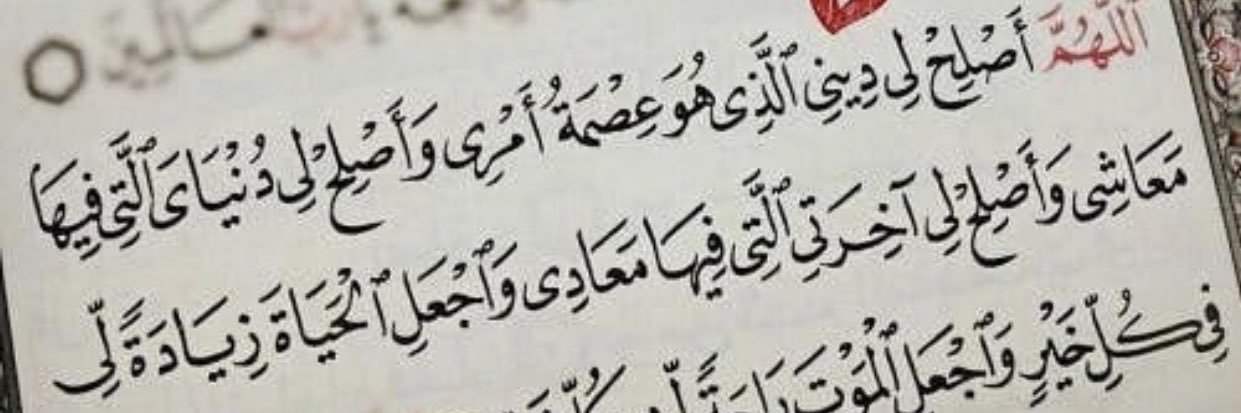 اَللّٰهُمَّ أَصْلِحْ لِى دِينِى ٱلَّذِى هُوَ عِصْمَةُ أَمْرِى وَأَصْلِحْ لِى دُنْيَاىَ ٱلَّتِى فِيهَا
مَعَاشِى وَأَصْلِحْ لِى آخِرَتِى ٱلَّتِى فِيهَا مَعَادِى وَٱجْعَلِ ٱلْحَيَاةَ زِيَادَةً لِّى
فِى كُلِّ خَيْرٍ وَٱجْعَلِ ٱلْمَوْتَ